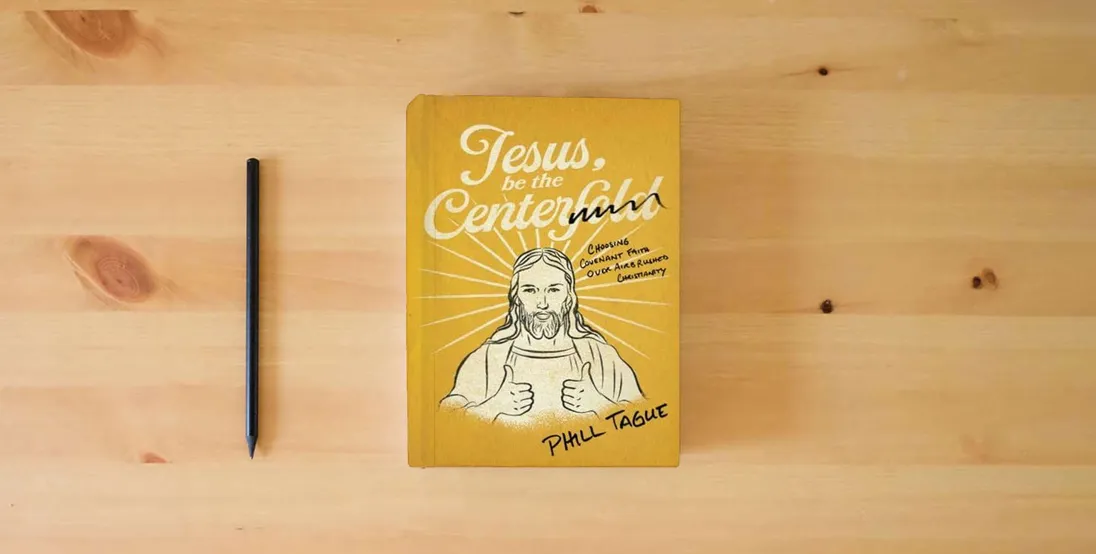 Jesus,
be the
Centerfold
CHOOSING
COVENANT FAITH
OVER AIRBRUSHED
CHRISTIANITY
PHILL TAGUE